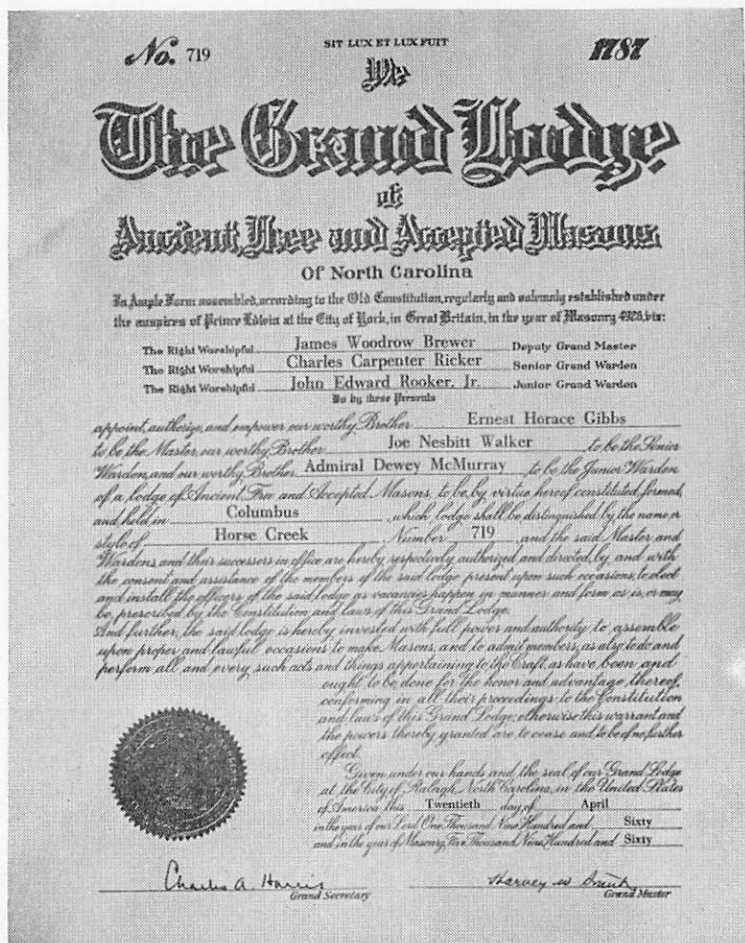 No. 719 SIT LUX ET LUX FUIT 1787
We
The Grand Lodge
of
Ancient, Free and Accepted Masons
Of North Carolina
In Ample Form assembled, according to the Old Constitution, regularly and solemnly established under
the auspices of Prince Edwin at the City of York, in Great Britain, in the year of Masonry 4926, viz:
The Right Worshipful James Woodrow Brewer Deputy Grand Master
The Right Worshipful Charles Carpenter Ricker Senior Grand Warden
The Right Worshipful John Edward Rooker, Jr. Junior Grand Warden
Do by these Presents
appoint, authorize, and empower our worthy Brother Ernest Horace Gibbs
to be the Master, our worthy Brother Joe Nesbitt Walker to be the Senior
Warden, and our worthy Brother Admiral Dewey McMurray to be the Junior Warden
of a lodge of Ancient, Free and Accepted Masons, to be, by virtue hereof constituted, formed,
and held in Columbus, which lodge shall be distinguished by the name or
style of Horse Creek Number 719, and the said Master and
Wardens, and their successors in office are hereby, respectively authorized and directed, by and with
the consent and assistance of the members of the said lodge present upon such occasions, to elect
and install the officers of the said lodge as vacancies happen in manner and form as is, or may
be, prescribed by the Constitution and laws of this Grand Lodge.
And further, the said lodge is hereby invested with full power and authority to assemble
upon proper and lawful occasions to make Masons, and to admit members, as also to do and
perform all and every such acts and things appertaining to the Craft as have been and
ought to be done for the honor and advantage thereof,
conforming in all their proceedings to the Constitution
and laws of this Grand Lodge, otherwise this warrant and
the powers thereby granted are to cease and to be of no further
effect.
Given under our hands and the seal of our Grand Lodge
at the City of Raleigh, North Carolina, in the United States
of America this Twentieth day of April
in the year of our Lord One Thousand Nine Hundred and Sixty
and in the year of Masonry, Five Thousand Nine Hundred and Sixty
Charles A. Harris Harvey W. Smith
Grand Secretary Grand Master